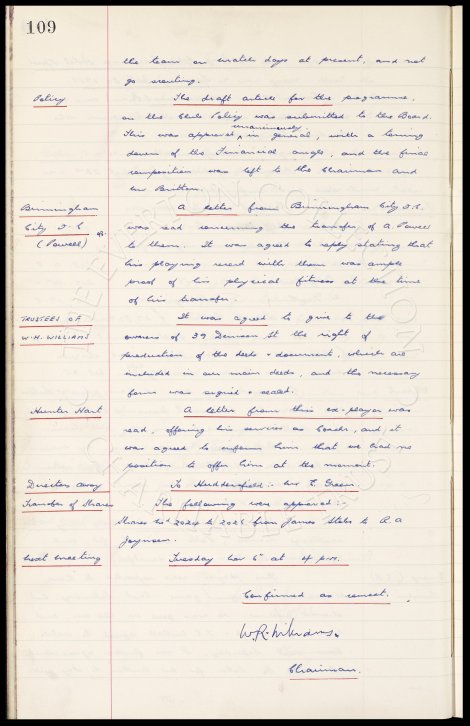 109
the team on match days at present, and not
go scouting.
Policy The draft article for the programme,
on the Clubs Policy was submitted to the Board.
unanimously
This was approved in general, with a toning
down of the Financial angle, and the final
composition was left to the Chairman and
Mr Britton.
Birmingham A letter from Birmingham City F.C.
City F.C was read concerning the transfer of A. Powell
(Powell) to them. It was agreed to reply stating that
his playing record with them was ample
proof of his physical fitness at the time
of his transfer.
TRUSTEES OF It was agreed to give to the
W.H. WILLIAMS owners of 39 St the right of
production of the deeds + document, which are
included in our main deeds, and the necessary
form was signed + sealed.
Hunter Hart A letter from this ex-player was
read, offering his services as Coach, and it
was agreed to inform him that we had no
position to offer him at the moment.
Directors away To Huddersfield:- Mr C. Green.
Transfer of Shares The following were approved:-
Shares Nos 2024 to 2026 from James to R. A
Joynson.
Next meeting Tuesday Nov 6th at 4 p.m.
Confirmed as correct.
W.R. Williams.
Chairman.